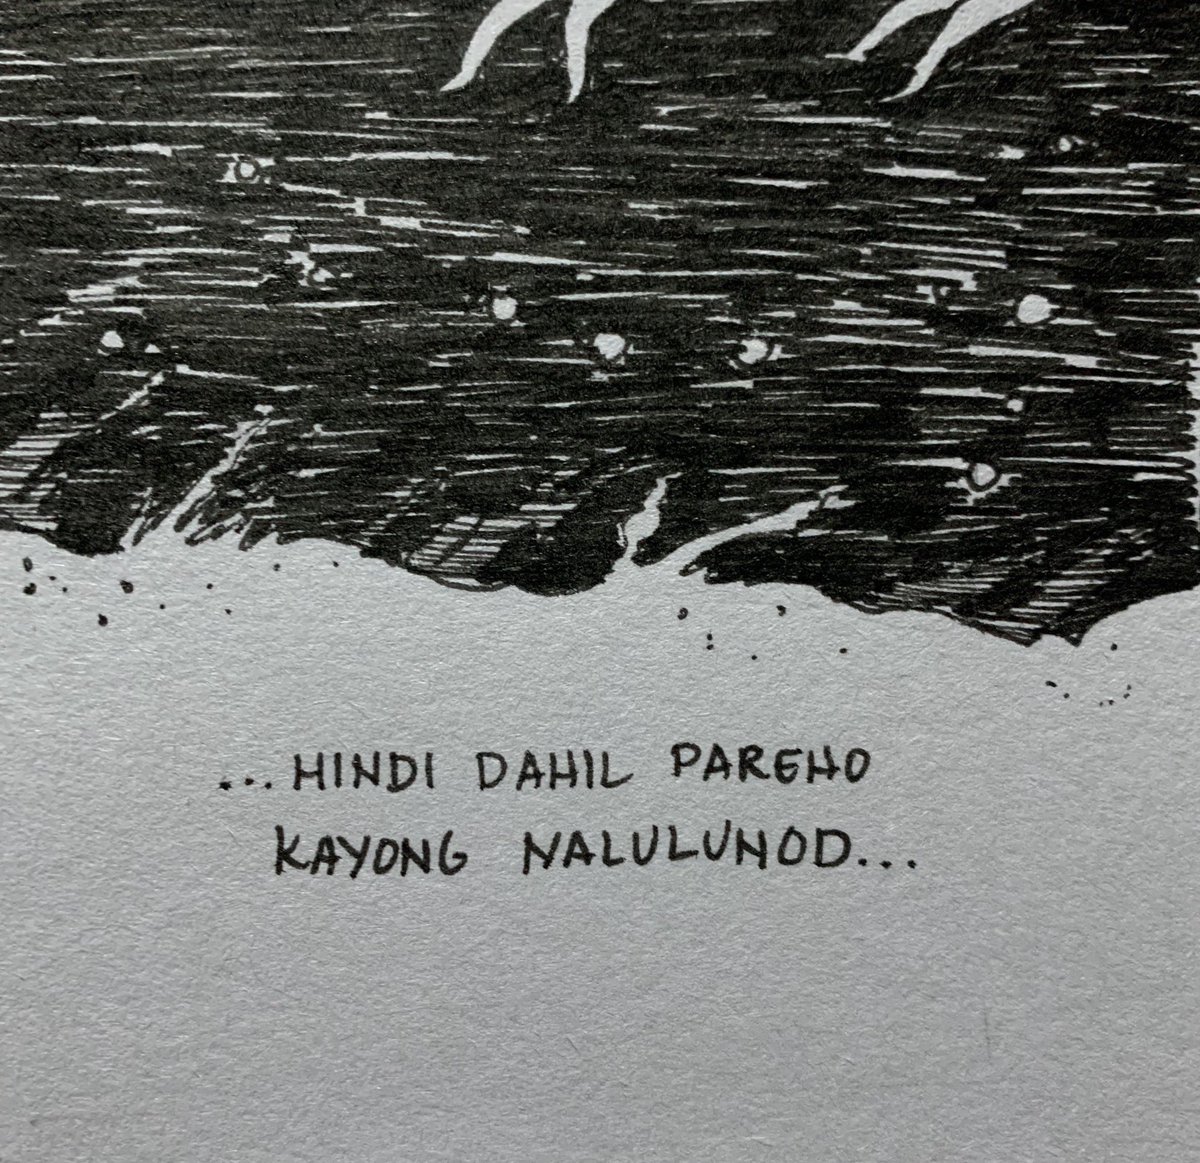 ...HINDI DAHIL PAREHO
KAYONG NALULUNOD...